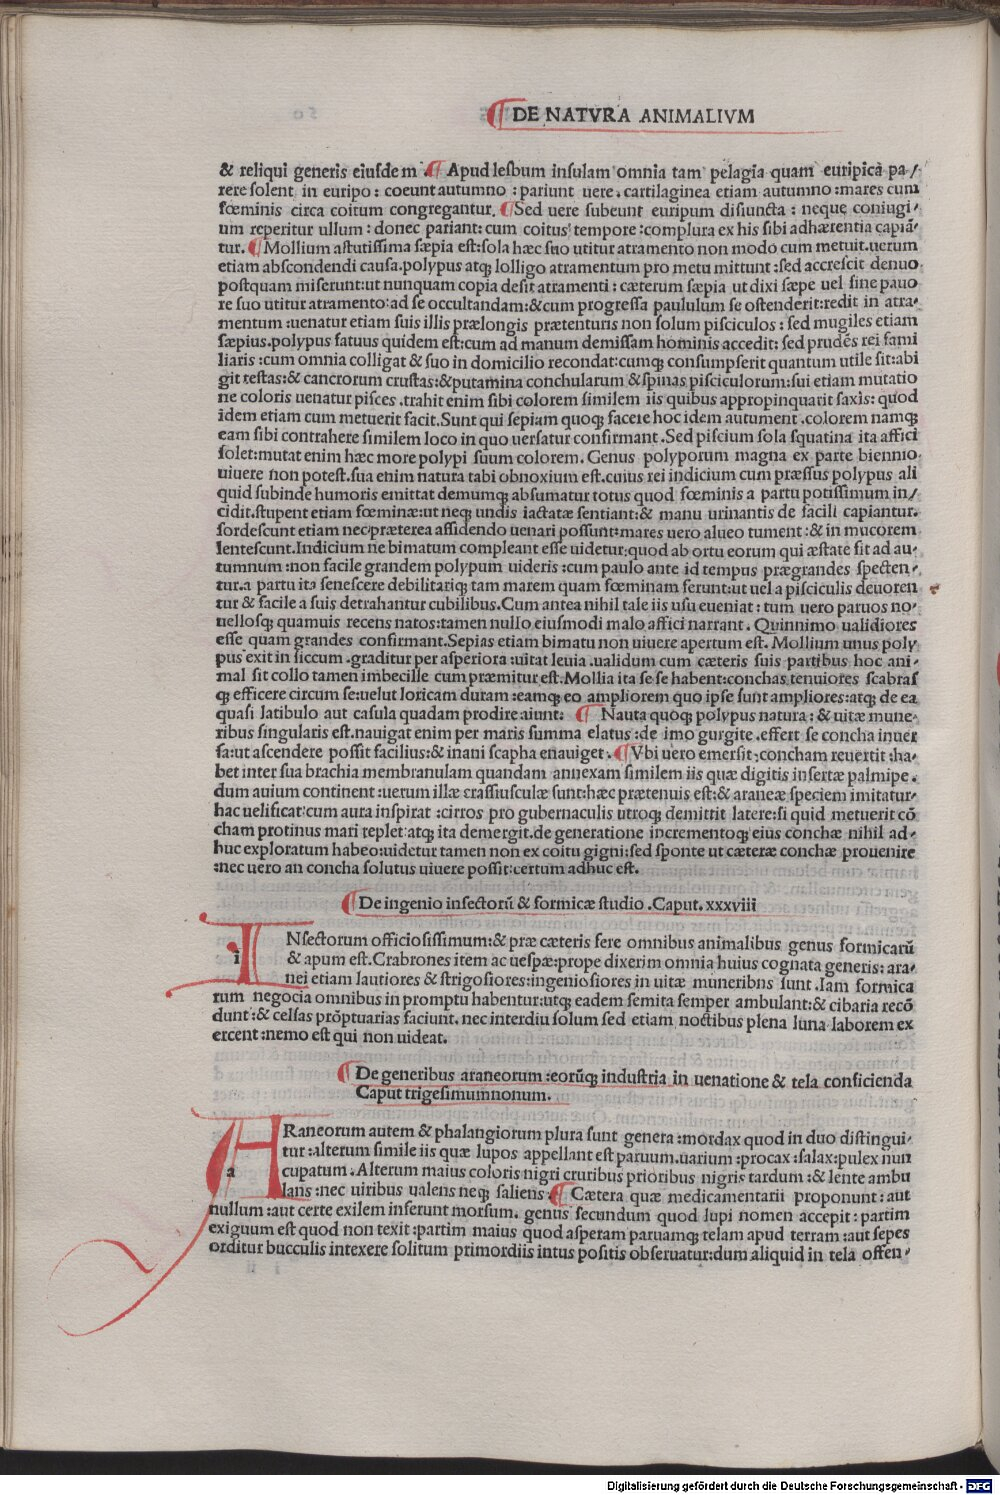 DE NATVRA ANIMALIVM
& reliqui generis eiusdem . ¶ Apud lesbum insulam omnia tam pelagia quam euripica pa/
rere solent in euripo : coeunt autumno : pariunt uere . cartilaginea etiam autumno : mares cum
fœminis circa coitum congregantur. ¶ Sed uere subeunt euripum disiuncta : neque coniugi-
um reperitur ullum : donec pariant: cum coitus tempore : complura ex his sibi adhærentia capiā-
tur. ¶ Mollium astutissima sæpia est: sola hæc suo utitur atramento non modo cum metuit. uerum
etiam abscondendi causa. polypus atqꝫ lolligo atramentum pro metu mittunt : sed accrescit denuo
postquam miserunt: ut nunquam copia desit atramenti : cæterum sæpia ut dixi sæpe uel sine pauo
re suo utitur atramento: ad se occultandam: & cum progressa paululum se ostenderit: redit in atra-
mentum : uenatur etiam suis illis prælongis prætenturis non solum pisciculos : sed mugiles etiam
sæpius. polypus fatuus quidem est: cum ad manum demissam hominis accedit: sed prudēs rei fami
liaris : cum omnia colligat & suo in domicilio recondat: cumqꝫ consumpserit quantum utile sit: abi
git testas: & cancrorum crustas: & putamina conchularum & spinas pisciculorum: sui etiam mutatio
ne coloris uenatur pisces . trahit enim sibi colorem similem iis quibus appropinquarit saxis: quod
idem etiam cum metuerit facit. Sunt qui sepiam quoqꝫ facere hoc idem autument . colorem namqꝫ
eam sibi contrahere similem loco in quo uersatur confirmant . Sed piscium sola squatina ita affici
solet: mutat enim hæc more polypi suum colorem. Genus polyporum magna ex parte biennio
uiuere non potest. sua enim natura tabi obnoxium est. cuius rei indicium cum præssus polypus ali
quid subinde humoris emittat demumqꝫ absumatur totus quod fœminis a partu potissimum in/
cidit. stupent etiam fœminæ: ut neqꝫ undis iactatæ sentiant: & manu urinantis de facili capiantur.
sordescunt etiam nec præterea assidendo uenari possunt: mares uero alueo tument : & in mucorem
lentescunt. Indicium ne bimatum compleant esse uidetur: quod ab ortu eorum qui æstate sit ad au-
tumnum : non facile grandem polypum uideris : cum paulo ante id tempus prægrandes specten-
tur. a partu ita senescere debilitariqꝫ tam marem quam fœminam ferunt: ut uel a pisciculis deuoren
tur & facile a suis detrahantur cubilibus. Cum antea nihil tale iis usu eueniat : tum uero paruos no-
uellosqꝫ quamuis recens natos: tamen nullo eiusmodi malo affici narrant . Quinnimo ualidiores
esse quam grandes confirmant. Sepias etiam bimatu non uiuere apertum est. Mollium unus poly
pus exit in siccum . graditur per asperiora : uitat leuia . ualidum cum cæteris suis partibus hoc ani-
mal sit collo tamen imbecille cum præmitur est. Mollia ita se se habent: conchas tenuiores scabras
qꝫ efficere circum se: uelut loricam duram : eamqꝫ eo ampliorem quo ipse sunt ampliores: atqꝫ de ea
quasi latibulo aut casula quadam prodire aiunt. ¶ Nauta quoqꝫ polypus natura : & uitæ mune-
ribus singularis est. nauigat enim per maris summa elatus : de imo gurgite . effert se concha inuer
sa: ut ascendere possit facilius: & inani scapha enauiget . ¶ Vbi uero emersit: concham reuertit : ha-
bet inter sua brachia membranulam quandam annexam similem iis quæ digitis insertæ palmipe-
dum auium continent : uerum illæ crassiusculæ sunt: hæc prætenuis est: & araneæ speciem imitatur.
hac uelificat: cum aura inspirat : cirros pro gubernaculis utroqꝫ demittit latere: si quid metuerit cō
cham protinus mari replet: atqꝫ ita demergit. de generatione incrementoqꝫ eius conchæ nihil ad-
huc exploratum habeo: uidetur tamen non ex coitu gigni: sed sponte ut cæteræ conchæ prouenire
: nec uero an concha solutus uiuere possit: certum adhuc est.
¶ De ingenio insectorū & formicæ studio . Caput. xxxviii
i INsectorum officiosissimum: & præ cæteris fere omnibus animalibus genus formicarū
& apum est. Crabrones item ac uespæ: prope dixerim omnia huius cognata generis: ara-
nei etiam lautiores & strigosiores: ingeniosiores in uitæ muneribns sunt . Iam formica
rum negocia omnibus in promptu habentur: utqꝫ eadem semita semper ambulant: & cibaria recō
dunt : & celsas prōptuarias faciunt. nec interdiu solum sed etiam noctibus plena luna laborem ex
ercent : nemo est qui non uideat.
¶ De generibus araneorum : eorūqꝫ industria in uenatione & tela conficienda
Caput trigesimumnonum.
a ARaneorum autem & phalangiorum plura sunt genera : mordax quod in duo distingui-
tur : alterum simile iis quæ lupos appellant est paruum. uarium : procax : salax: pulex nun
cupatum . Alterum maius coloris nigri cruribus prioribus nigris tardum : & lente ambu
lans : nec uiribus ualens neqꝫ saliens. ¶ Cætera quæ medicamentarii proponunt : aut
nullum : aut certe exilem inferunt morsum. genus secundum quod lupi nomen accepit : partim
exiguum est quod non texit : partim maius quod asperam paruamqꝫ telam apud terram : aut sepes
orditur bucculis intexere solitum primordiis intus positis obseruatur: dum aliquid in tela offen-
Digitalisierung gefördert durch die Deutsche Forschungsgemeinschaft - DFG